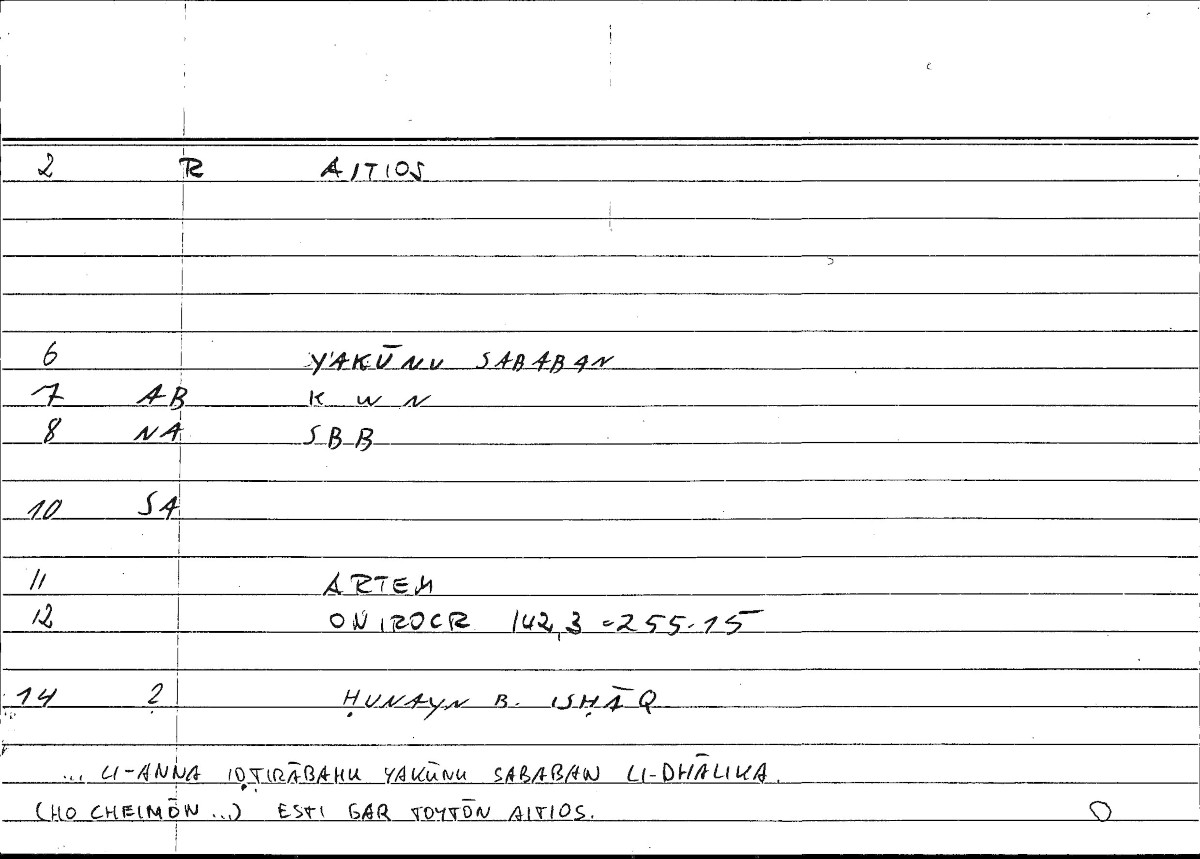 2 R AITIOS
6 YAKŪNU SABABAN
7 AB K W N
8 NA SBB
10 SA
11 ARTEM
12 ONIROCR 142,3 = 255.15
14 2 ḤUNAYN B. ISḤĀQ
... LI-ANNA IḌṬIRĀBAHU YAKŪNU SABABAN LI-DHĀLIKA.
(HO CHEIMŌN ...) ESTI GAR TOYTŌN AITIOS. O